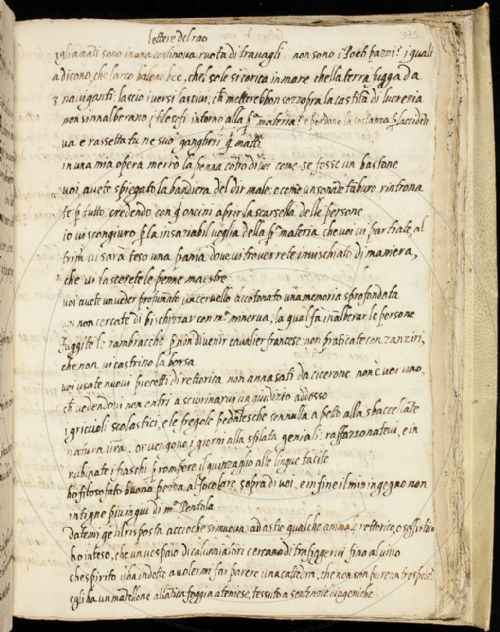 lettere del rao
375
gli amati sono in una continova ruota di travagli. non sono i Poeti pazzi? i quali
dicono, che l'arco baleno bee, che'l sole si corica in mare che la terra fugga da
naviganti: lascio i versi lascivi, ch metterebbon sozzopra la castità di lucrezia
non s'innalberano i filosofi intorno alla pª materia? e perdono la sostanza p l'accidente
va e rassetta tu ne suoi gangheri q matti
in una mia opera merrò la penna contro di voi come se fosse un bastone
voi avete spiegato la bandiera del dir male: e come un sonante taburo rintrona
te p tutto credendo con q oncini aprir la scarsella delle persone
io vi scongiuro p la insaziabil voglia della pª materia che voi vi partiate al
trim vi sarà teso una pania dove vi troverrete invischiato di maniera,
che vi lascerete le penne maestre
voi avete un veder profumato un cervello accotonato una memoria sprofondata
non cercate di bischizzar con mª minerva, la qual fa inalberar le persone
fuggite le rambiacche p non divenir cavalier francese non praticate con zanziri,
che non vi castrino la borsa
voi usate nuovi precetti di rettorica non annasati da cicerone non è voi uno,
ch vedendovi non entri a scorinarvi un giudizio addosso
i griccioli scolastici, e le fregole pedantesche con nulla a petto alla sbaccellante
natura vra. or vengono i giorni alla sfilata geniali: raffazzonatevi, e in
rubinate i fiaschi p rompere il guinzaglio alle lingue tacite
ho filosofato buona pezza al focolare sopra di voi, e infine il mio ingegno non
intigne piu in qui di mª Pentola
datemi gentil risposta accioche si muova ad astio qualche anima rettorica, e soffistica
ho inteso, che un vespaio di calunniatori cercano di trafiggervi fino al vivo
che spirito vi ha indotto a volermi far parere una cattedra, che non son pure un trespolo
egli ha un mantellone all'antica foggia ateniese, tessuto a sentenzie diogeniche